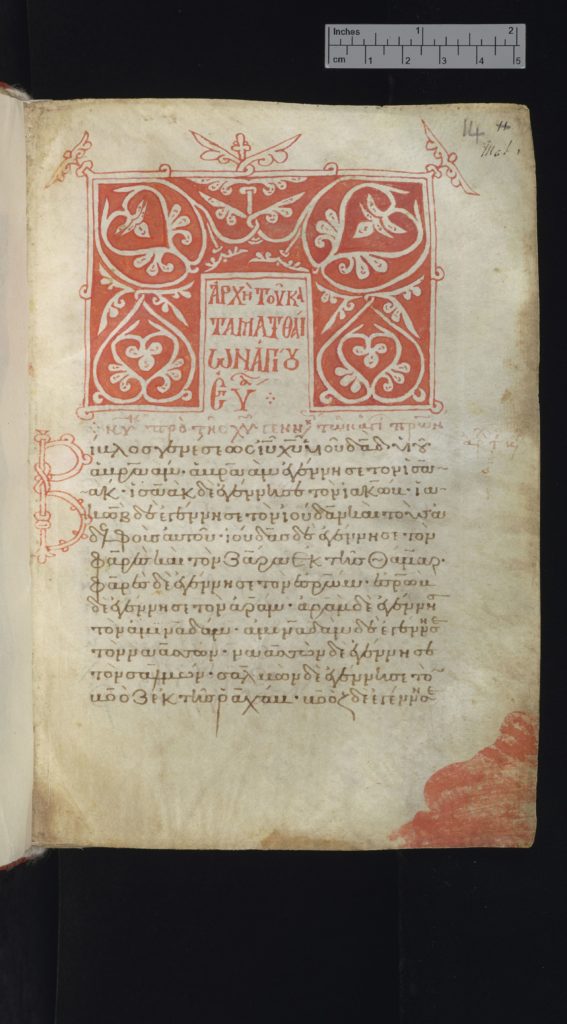 Inches 1 2
cm 1 2 3 4 5
14
ΑΡΧῊ ΤΟῦ ΚΑ
ΤΑ ΜΑΤΘΑῖ
ΩΝ ἉΓΙΟΥ
ΕΥ
πρὸ τῆς χῦ γενν
ίβλος γενέσεως ἰῦ χῦ ϋἱοῦ δαδ ϋἱοῦ
ἀβραάμ · ἀβραὰμ ἐγέννησε τὸν ἰσα
ακ · ἰσαὰκ δὲ ἐγέννησε τὸν ἰακώβ · ἰα
κὼβ δὲ ἐγέννησε τὸν ἰούδαν καὶ τοὺς ἀ
δελφοὺς αὐτοῦ · ἰούδας δὲ ἐγέννησε τὸν
φαρὲς καὶ τὸν ζαρὰ ἐκ τῆς θάμαρ ·
φαρὲς δὲ ἐγέννησε τὸν ἐσρώμ · ἐσρὼμ
δὲ ἐγέννησε τὸν ἀράμ · ἀρὰμ δὲ ἐγέννη
τὸν ἀμιναδάμ · ἀμιναδὰμ δὲ ἐγέννησε
τὸν ναασσών · ναασσὼν δὲ ἐγέννησε
τὸν σαλμών · σαλμὼν δὲ ἐγέννησε το
βοὸζ ἐκ τῆς ῥαχάβ · βοὸζ δὲ ἐγέννησε